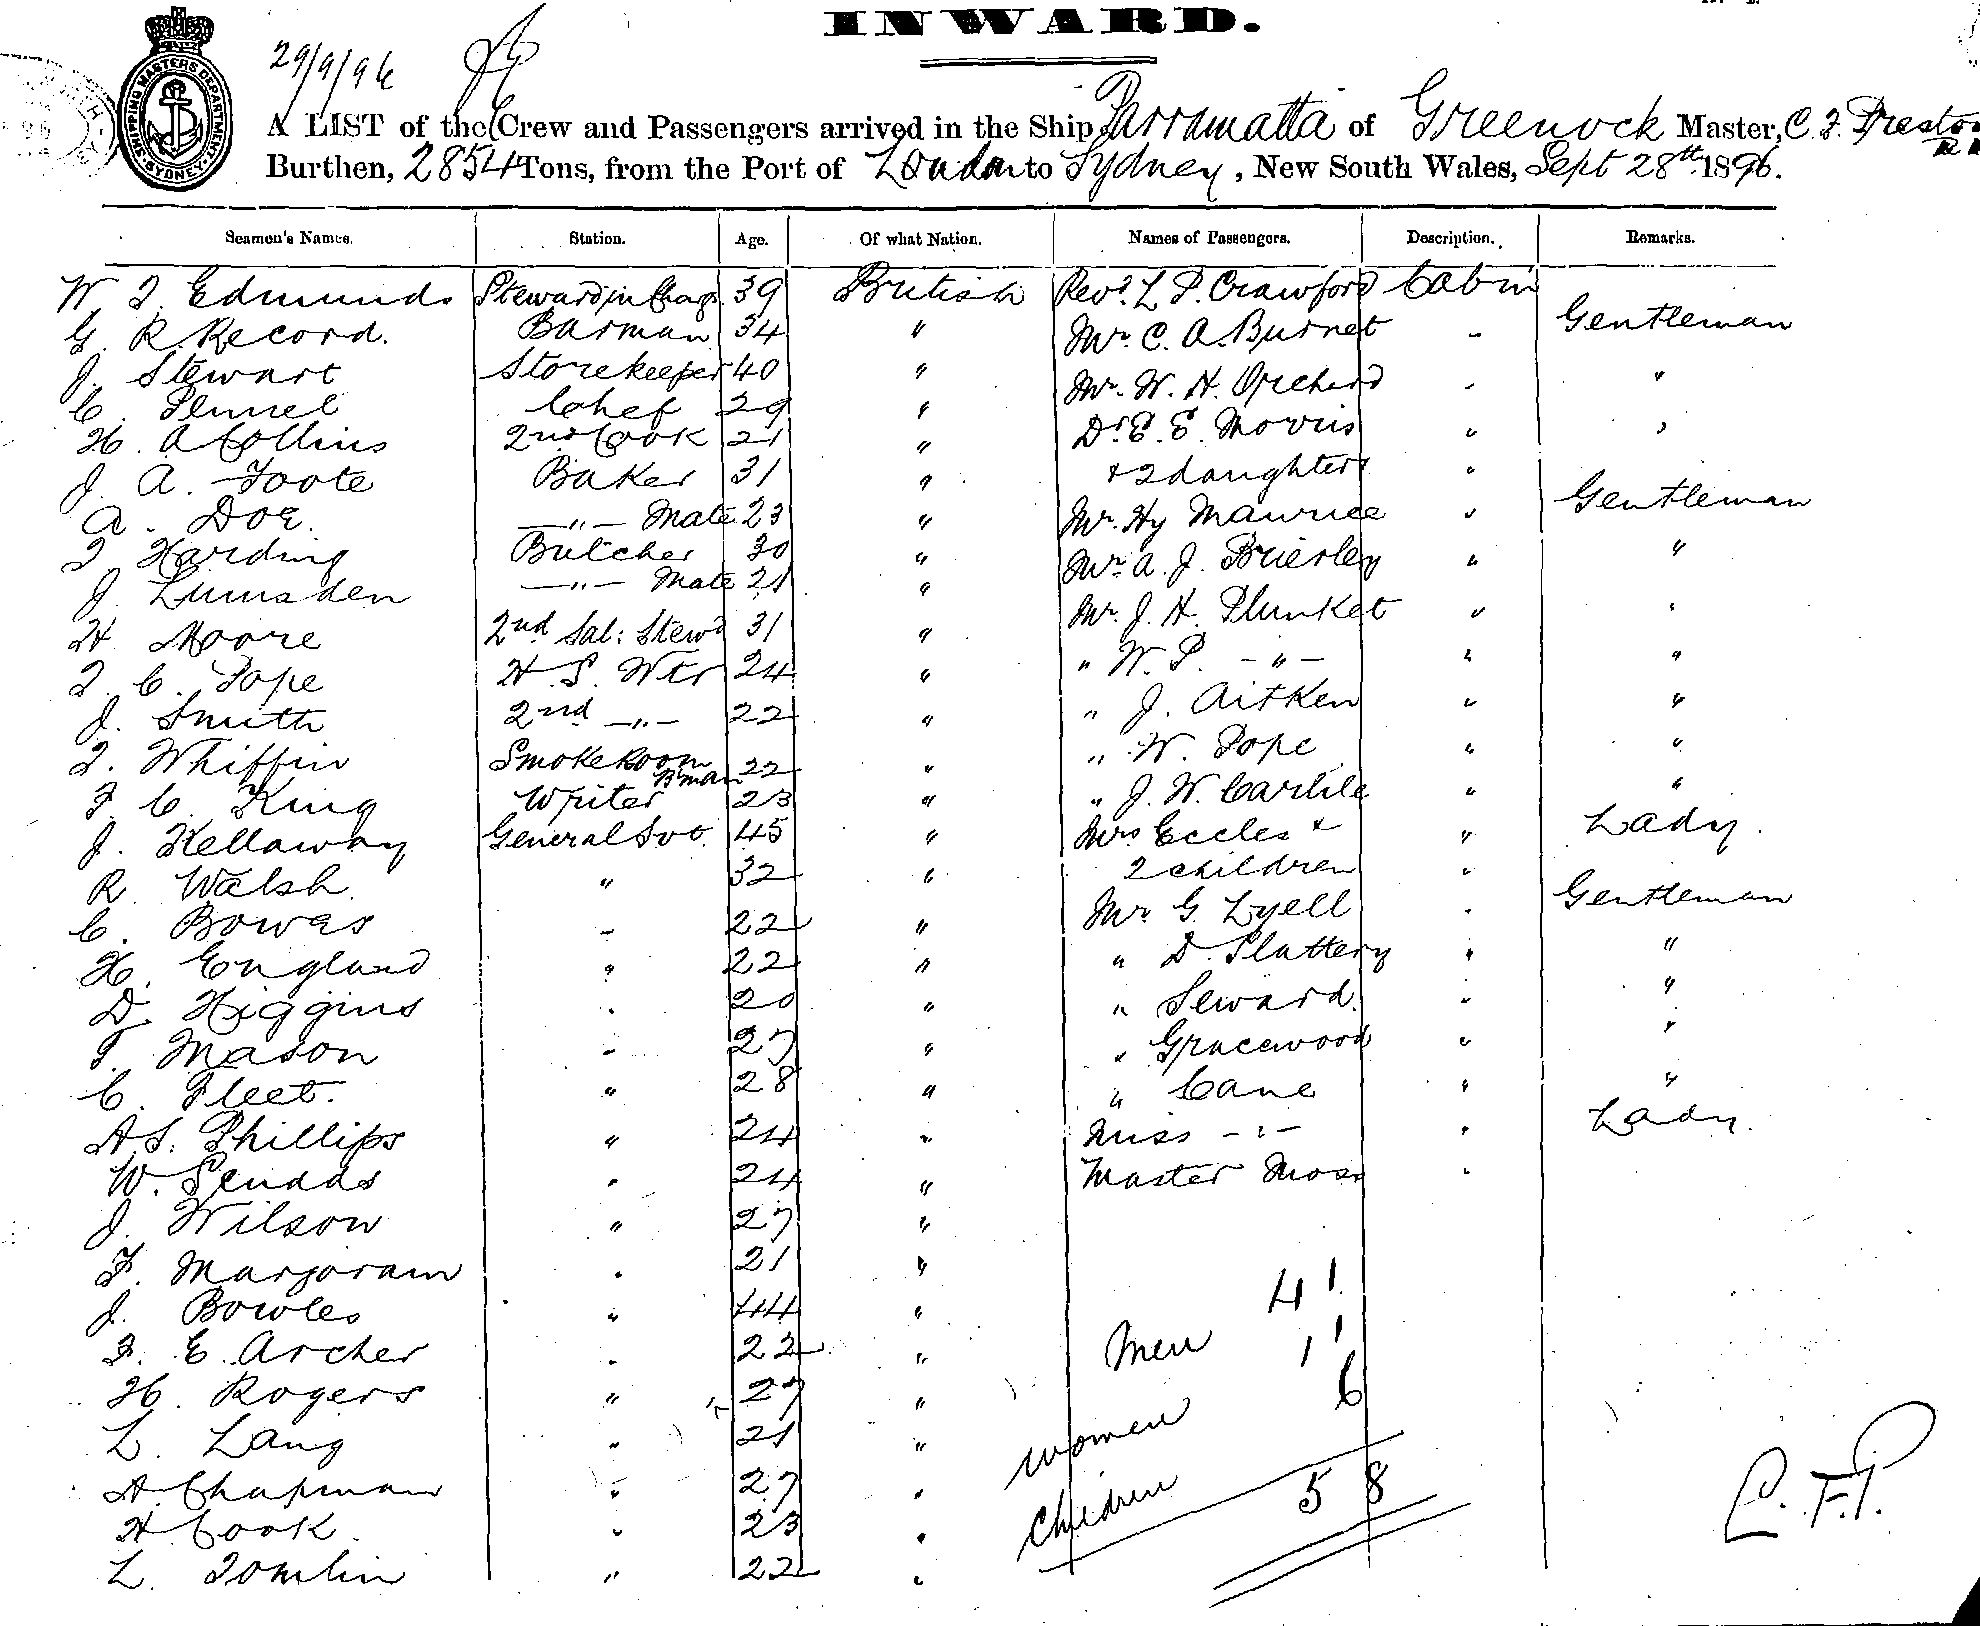 INWARD.
29/9/96
SHIPPING MASTERS DEPARTMENT SYDNEY
A LIST of the Crew and Passengers arrived in the Ship Parramatta of Greenock Master, C. F. Preston
Burthen, 2854 Tons, from the Port of London to Sydney, New South Wales, Sept 28th 1896.
Seamen's Names. Station. Age. Of what Nation. Names of Passengers. Description. Remarks.
W. T. Edmunds Steward in Charge 39 British Revd. L. P. Crawford Cabin
G. R. Record. Barman 34 " Mr. C. A. Burnet " Gentleman
J. Stewart Storekeeper 40 " Mr. W. H. Orchard " "
C. Chef 29 " Dr. E. E. Morris " "
H. A Collins 2nd Cook 21 " & 2 daughters "
J. A. Foote Baker 31 " Mr. Hy Maurice " Gentleman
A. Doe. —"— Mate 23 " Mr. A. J. Brierley " "
T Harding Butcher 30 " Mr. J. H. Plunket " "
J. Lumsden —"— Mate 21 " " W. P. —"— " "
H Moore 2nd Sal: Stewd 31 " " J. Aitken " "
T. C. Pope H. S. Wtr 24 " " W. Pope " "
J. Smith 2nd —"— 22 " " J. W. Carlile " "
T. Whiffin Smoke Room B'man 22 " Mrs Eccles & " Lady.
F. C. King Writer 23 " 2 children "
J. Kellaway General Svt. 45 " Mr. G. Lyell " Gentleman
R. Walsh. " 32 " " D. Slattery " "
C. Bowes " 22 " " Seward. " "
H. England " 22 " " Gracewood " "
D. Higgins " 20 " " Cane " "
T. Mason " 27 " Miss —"— " Lady.
C. Fleet. " 28 " Master Moss "
A. S. Phillips " 24 "
W. Scudds " 24 "
J. Wilson " 27 "
F. Marjoram " 21 "
J. Bowles " 44 "
F. E. Archer " 22 " Men 41
H. Rogers " 27 " Women 11
L. Lang " 21 " Children 6
A. Chapman " 27 " 58
H Cook " 23 "
L. Tomlin " 22 "
C. F. P.